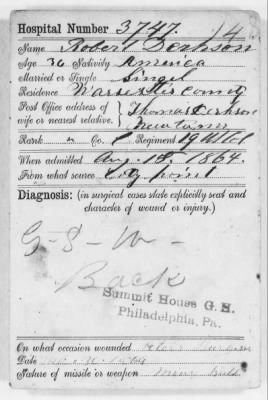 Hospital Number 3747. 14
Name Robert Derkson
Age 36 Nativity America
Married or Single Singel
Residence Worsester County
Post Office address of wife or nearest relative. } Thomas Derkson
Newtown
Rank " Co. C Regiment 19 U.S. Col
When admitted Aug. 18, 1864.
From what source City Point
Diagnosis: (in surgical cases state explicitly seat and
character of wound or injury.)
G-S-W-
Back
Summit House G. H.
Philadelphia, Pa.
On what occasion wounded
Date
Nature of missile or weapon Ball